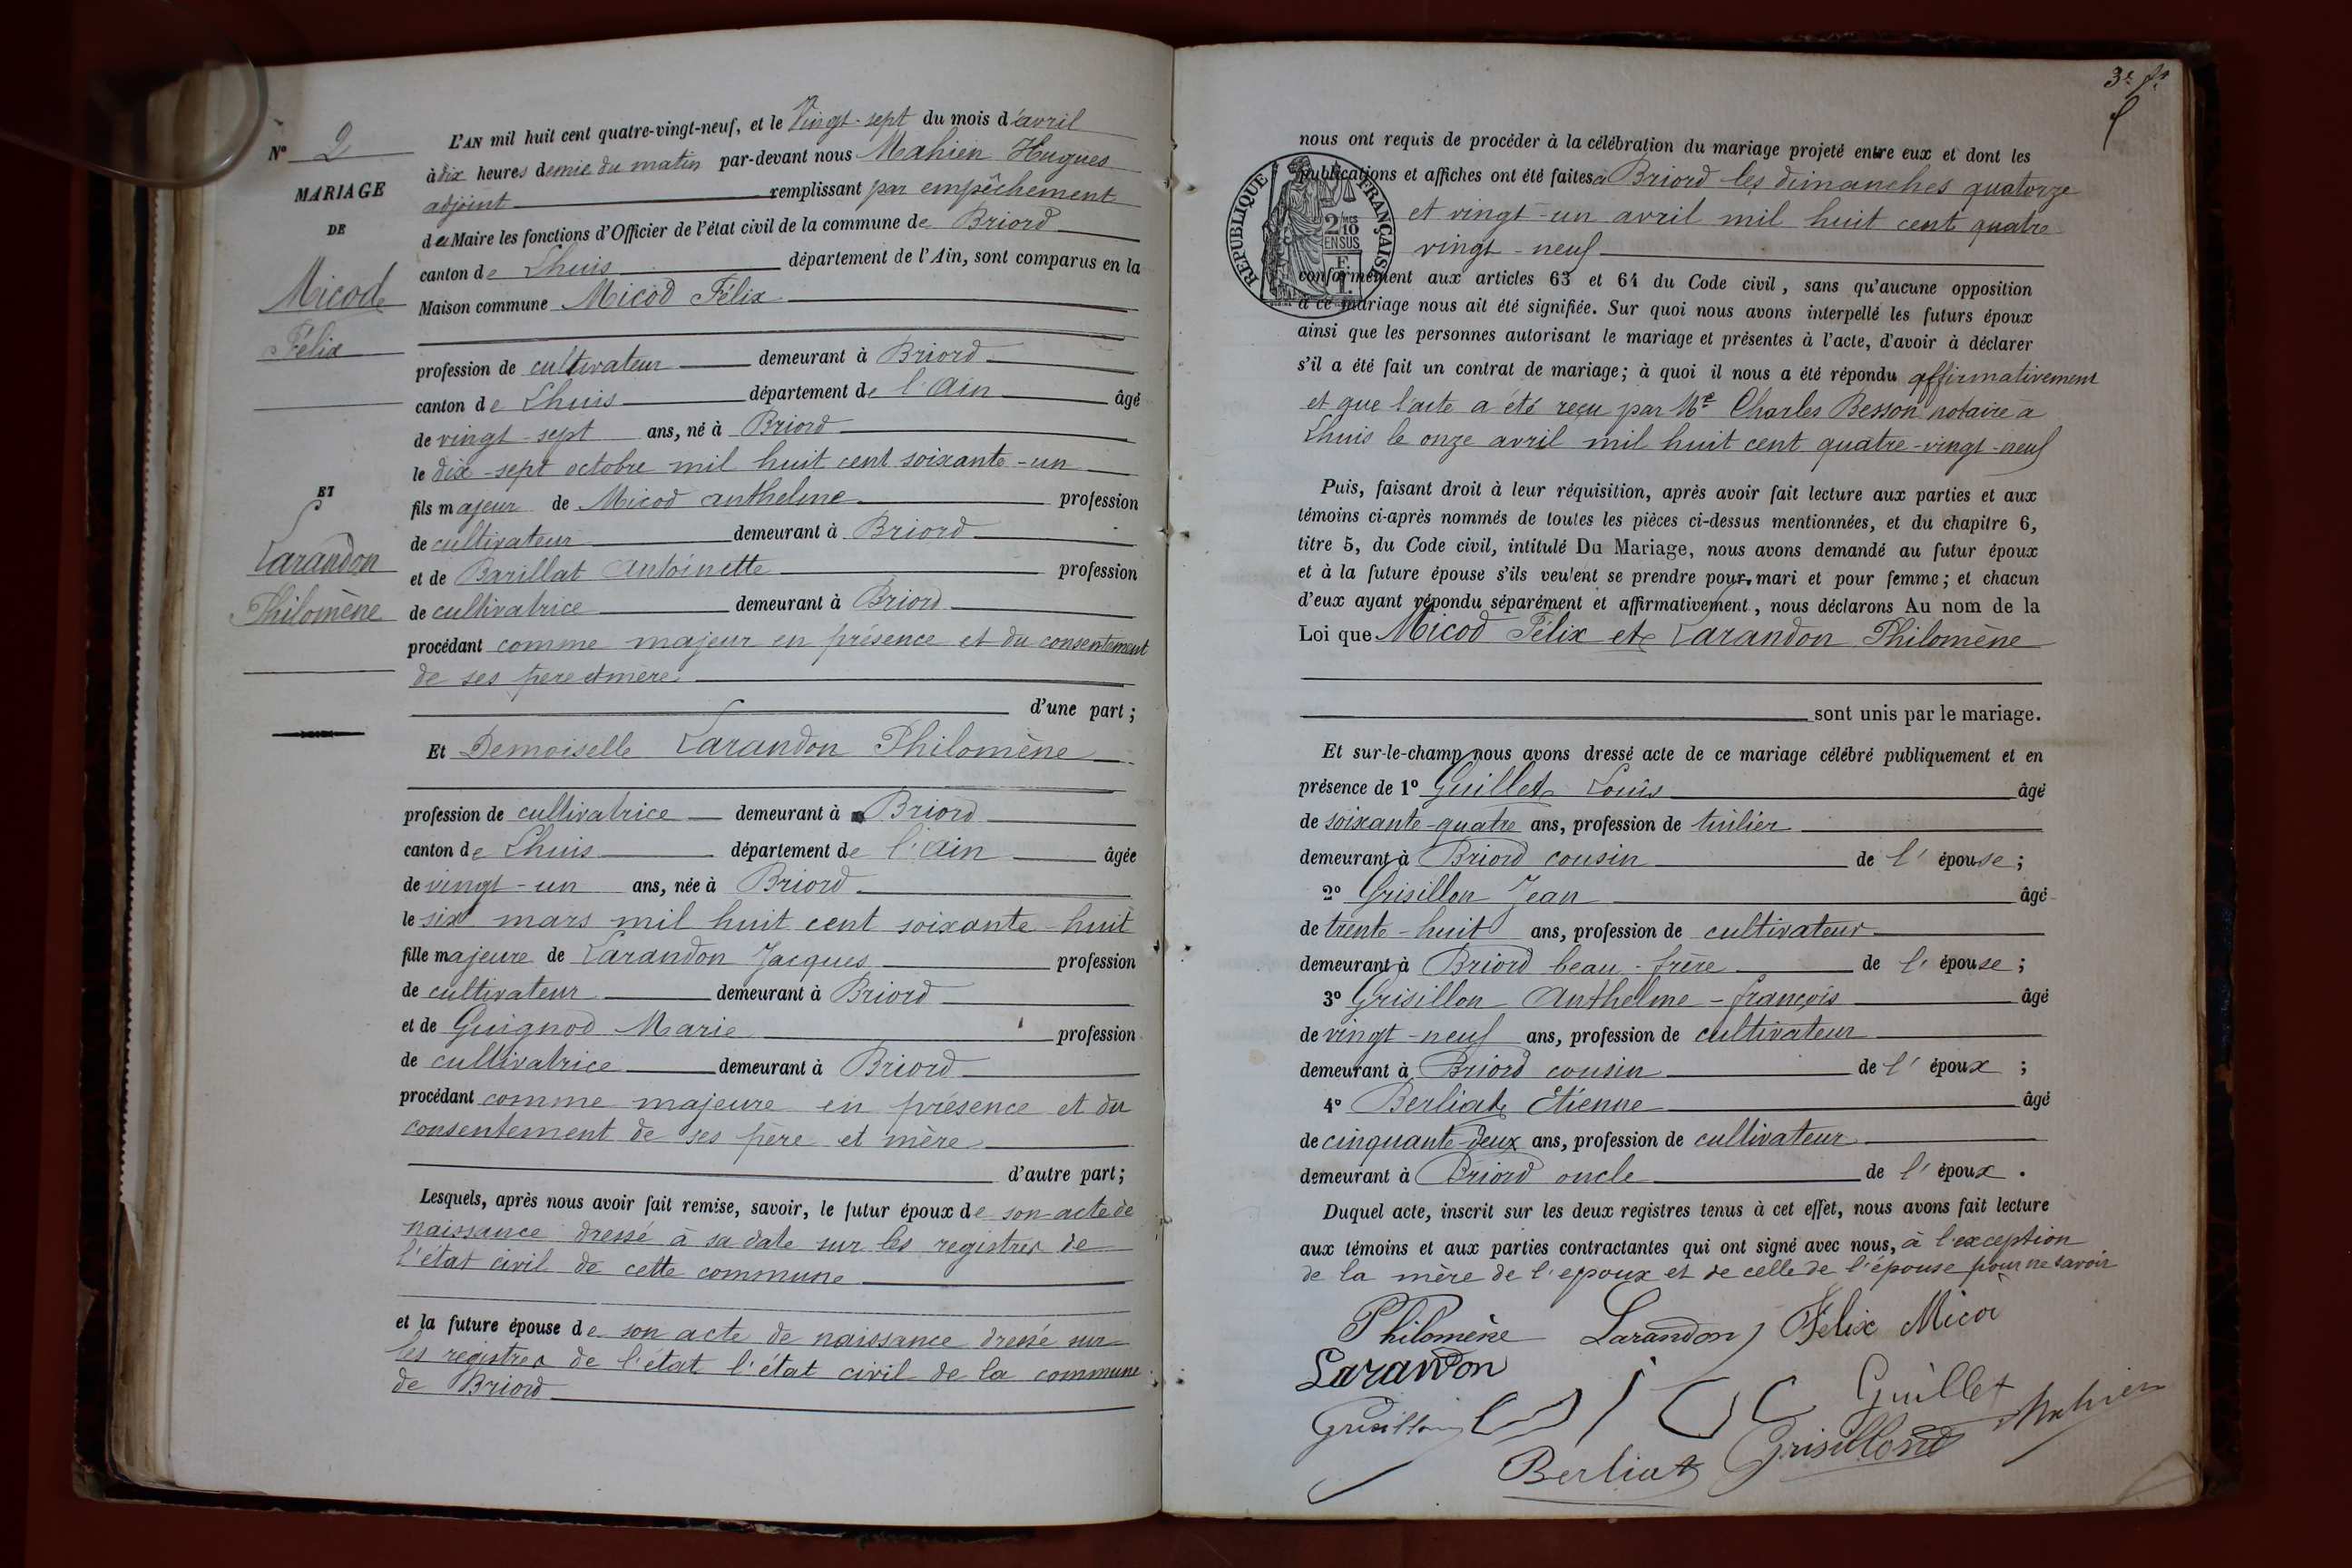 N° 2
MARIAGE
DE
Micod
Félix
ET
Larandon
Philomène
L'AN mil huit cent quatre-vingt-neuf, et le Vingt-sept du mois d'avril
à dix heures demie du matin par-devant nous Mahien Hugues
adjoint remplissant par empêchement
du Maire les fonctions d'Officier de l'état civil de la commune de Briord
canton de Lhuis département de l'Ain, sont comparus en la
Maison commune Micod Félix
profession de cultivateur demeurant à Briord
canton de Lhuis département de l'Ain âgé
de vingt-sept ans, né à Briord
le dix-sept octobre mil huit cent soixante-un
fils majeur de Micod Anthelme profession
de cultivateur demeurant à Briord
et de Barillat Antoinette profession
de cultivatrice demeurant à Briord
procédant comme majeur en présence et du consentement
de ses père et mère
d'une part;
Et Demoiselle Larandon Philomène
profession de cultivatrice demeurant à Briord
canton de Lhuis département de l'Ain âgée
de vingt-un ans, née à Briord
le six mars mil huit cent soixante-huit
fille majeure de Larandon Jacques profession
de cultivateur demeurant à Briord
et de Guignod Marie profession
de cultivatrice demeurant à Briord
procédant comme majeure en présence et du
consentement de ses père et mère
d'autre part;
Lesquels, après nous avoir fait remise, savoir, le futur époux de son acte de
naissance dressé à sa date sur les registres de
l'état civil de cette commune
et la future épouse de son acte de naissance dressé sur
les registres de l'état l'état civil de la commune
de Briord
nous ont requis de procéder à la célébration du mariage projeté entre eux et dont les
publications et affiches ont été faites à Briord les dimanches quatorze
et vingt-un avril mil huit cent quatre
vingt-neuf
conformément aux articles 63 et 64 du Code civil, sans qu'aucune opposition
à ce mariage nous ait été signifiée. Sur quoi nous avons interpellé les futurs époux
ainsi que les personnes autorisant le mariage et présentes à l'acte, d'avoir à déclarer
s'il a été fait un contrat de mariage; à quoi il nous a été répondu affirmativement
et que l'acte a été reçu par Me Charles Besson notaire à
Lhuis le onze avril mil huit cent quatre-vingt-neuf
Puis, faisant droit à leur réquisition, après avoir fait lecture aux parties et aux
témoins ci-après nommés de toutes les pièces ci-dessus mentionnées, et du chapitre 6,
titre 5, du Code civil, intitulé Du Mariage, nous avons demandé au futur époux
et à la future épouse s'ils veulent se prendre pour mari et pour femme; et chacun
d'eux ayant répondu séparément et affirmativement, nous déclarons Au nom de la
Loi que Micod Félix et Larandon Philomène
sont unis par le mariage.
Et sur-le-champ nous avons dressé acte de ce mariage célébré publiquement et en
présence de 1° Guillet Louis âgé
de soixante-quatre ans, profession de tuilier
demeurant à Briord cousin de l'épouse;
2° Grisillon Jean âgé
de trente-huit ans, profession de cultivateur
demeurant à Briord beau-frère de l'épouse;
3° Grisillon Anthelme-françois âgé
de vingt-neuf ans, profession de cultivateur
demeurant à Briord cousin de l'époux;
4° Berliat Etienne âgé
de cinquante-deux ans, profession de cultivateur
demeurant à Briord oncle de l'époux.
Duquel acte, inscrit sur les deux registres tenus à cet effet, nous avons fait lecture
aux témoins et aux parties contractantes qui ont signé avec nous, à l'exception
de la mère de l'époux et de celle de l'épouse pour ne savoir
Philomène Larandon Félix Micod
Larandon
Guillet
Grisillon
Mahien
Berliat Grisillond
RÉPUBLIQUE FRANÇAISE
2/10 EN SUS